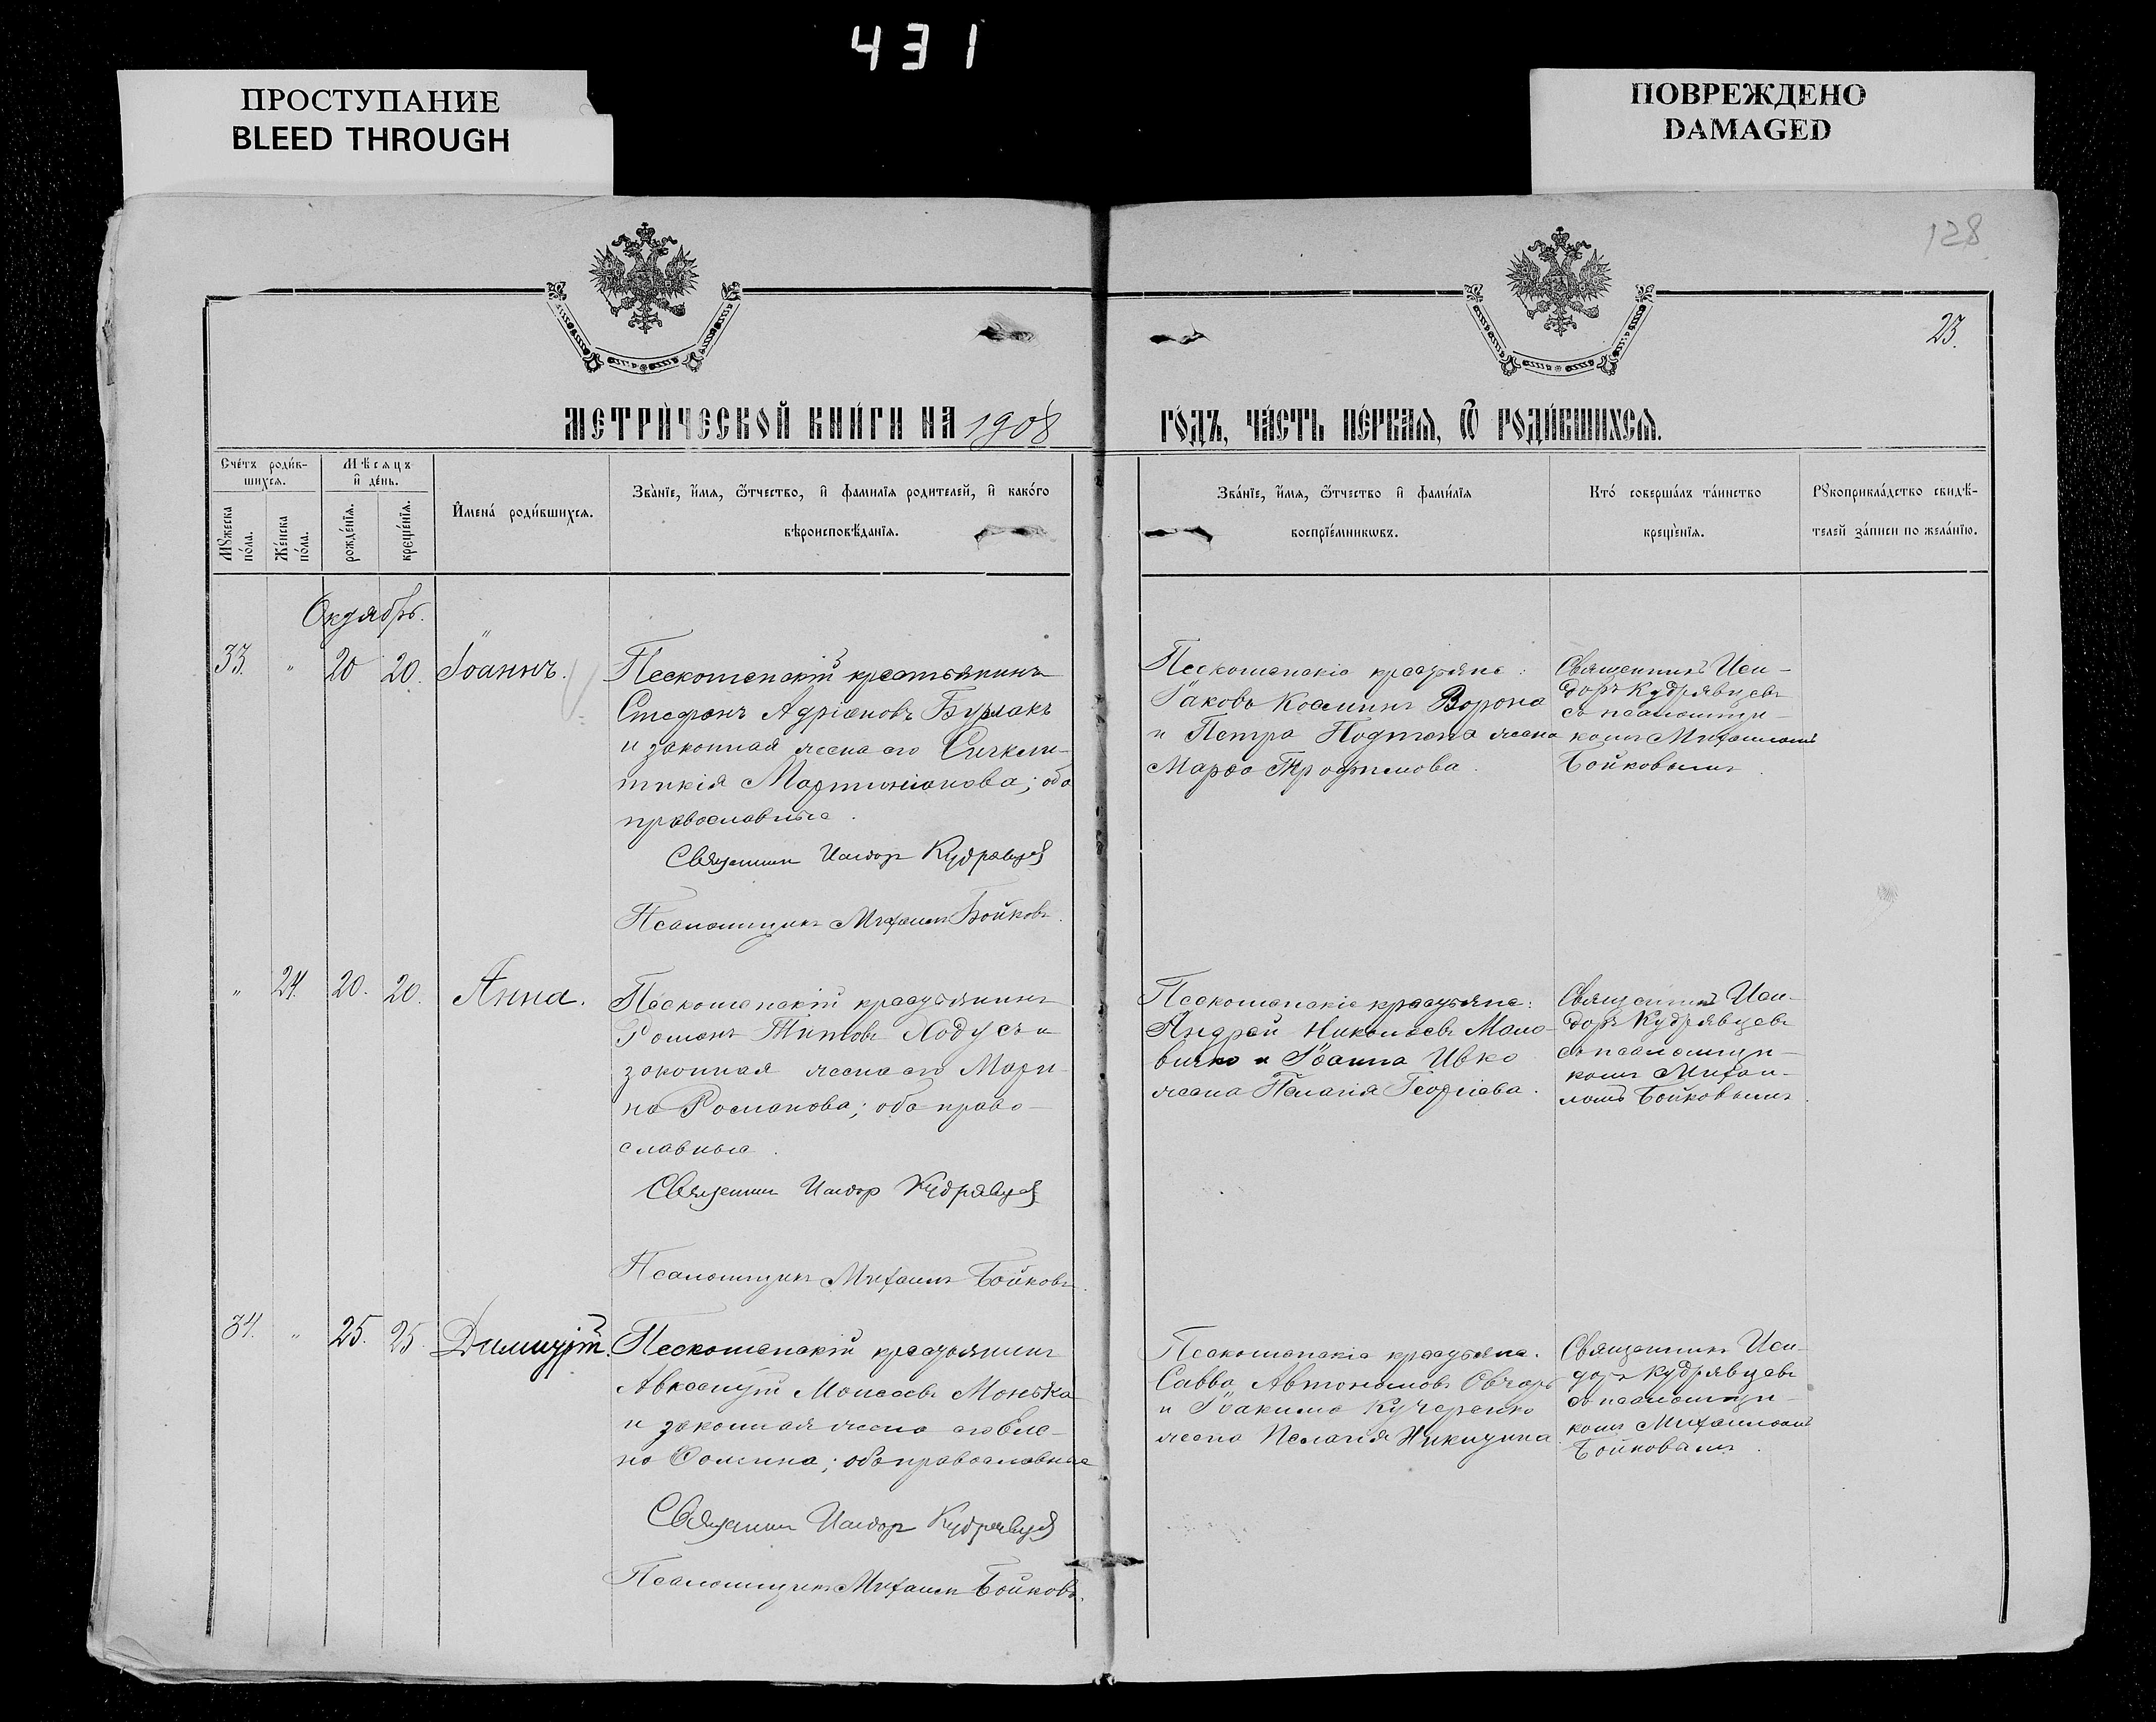 431
ПРОСТУПАНИЕ
BLEED THROUGH
ПОВРЕЖДЕНО
DAMAGED
128
23.
МЕТРИ́ЧЕСКОЙ КНИ́ГИ НА 1908
ГО́ДЪ, ЧА́СТЬ ПЕ́РВАЯ, Ѿ РОДИ́ВШИХСЯ.
Сче́тъ роди́в-
шихся.
Мѣсяцъ
и҆ де́нь.
Мꙋжеска
по́ла.
Же́нска
по́ла.
рожде́нїя.
креще́нїя.
И҆мена̀ роди́вшихся.
Зва́нїе, и҆́мя, ѻ҆́тчество, и҆ фамилїя родителей, и҆ како́го
вѣроисповѣ́данїя.
Зва́нїе, и҆́мя, ѻ҆́тчество и҆ фами́лїя
воспрїе́мникѡвъ.
Кто́ соверша́лъ та́инство
креще́нїя.
Рꙋкоприкла́дство свидѣ́-
телей за́писи по жела́нїю.
Октябрь.
33. " 20 20. Іоаннъ.
Пескошепскій крестьянинъ
Стефанъ Адріановъ Бурлакъ
и законная жена его Синкли-
тикія Мартиніанова; оба
православные.
Священник Исидор Кудрявцев
Псаломщикъ Михаилъ Бойковъ.
крестьяне:
Іаковъ Косминъ Ворона
и Петра жена
Марѳа Трофимова.
Священникъ Иси-
доръ Кудрявцевъ
съ псаломщи-
комъ Михаиломъ
Бойковымъ.
" 24. 20. 20. Анна.
крестьянинъ
Романъ Титовъ Ходусъ и
законная жена его Мари-
на Романова; оба право-
славные.
Священник Исидор Кудрявцев
Псаломщикъ Михаилъ Бойковъ.
крестьяне:
Андрей Николаевъ Мало-
вичко и Іоанна Ивко
жена Пелагія Георгіева.
Священникъ Иси-
доръ Кудрявцевъ
съ псаломщи-
комъ Михаи-
ломъ Бойковымъ.
34. " 25. 25. Димитрій.
крестьянинъ
Авксентій Моисеевъ Монька
и законная жена его Еле-
на Ѳомина; оба православные
Священник Исидор Кудрявцев
Псаломщикъ Михаилъ Бойковъ.
крестьяне:
Савва Автономовъ Овчаръ
и Іоакима Кучеренко
жена Пелагія Никитина.
Священникъ Иси-
доръ Кудрявцевъ
съ псаломщи-
комъ Михаиломъ
Бойковымъ.